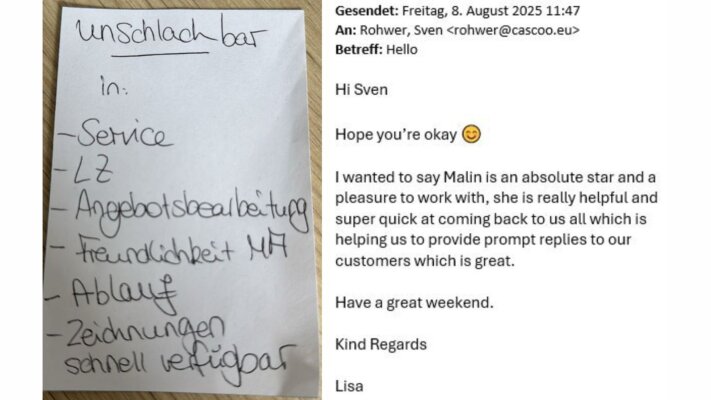 unschlachbar
in:
- Service
- LZ
- Angebotsbearbeitung
- Freundlichkeit MA
- Ablauf
- Zeichnungen
schnell verfügbar
Gesendet: Freitag, 8. August 2025 11:47
An: Rohwer, Sven <rohwer@cascoo.eu>
Betreff: Hello
Hi Sven
Hope you're okay 😊
I wanted to say Malin is an absolute star and a
pleasure to work with, she is really helpful and
super quick at coming back to us all which is
helping us to provide prompt replies to our
customers which is great.
Have a great weekend.
Kind Regards
Lisa